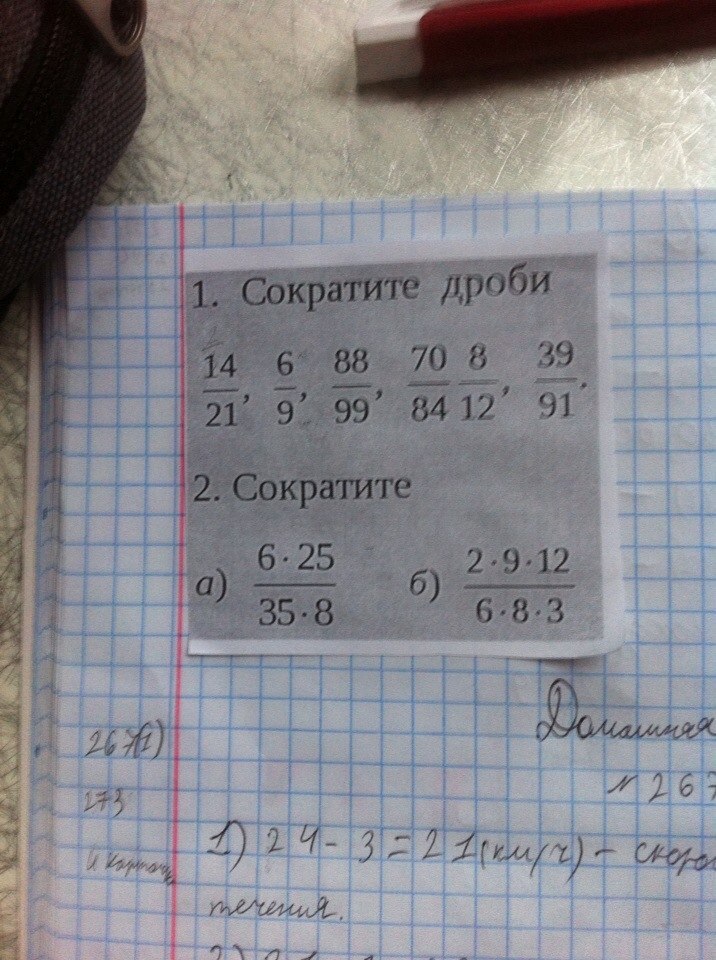 1. Сократите дроби
14/21, 6/9, 88/99, 70/84 8/12, 39/91.
2. Сократите
а) 6·25/35·8 б) 2·9·12/6·8·3
Домашняя
267(1)
№ 267
273
1) 24-3=21(км/ч) - скоро
течения.